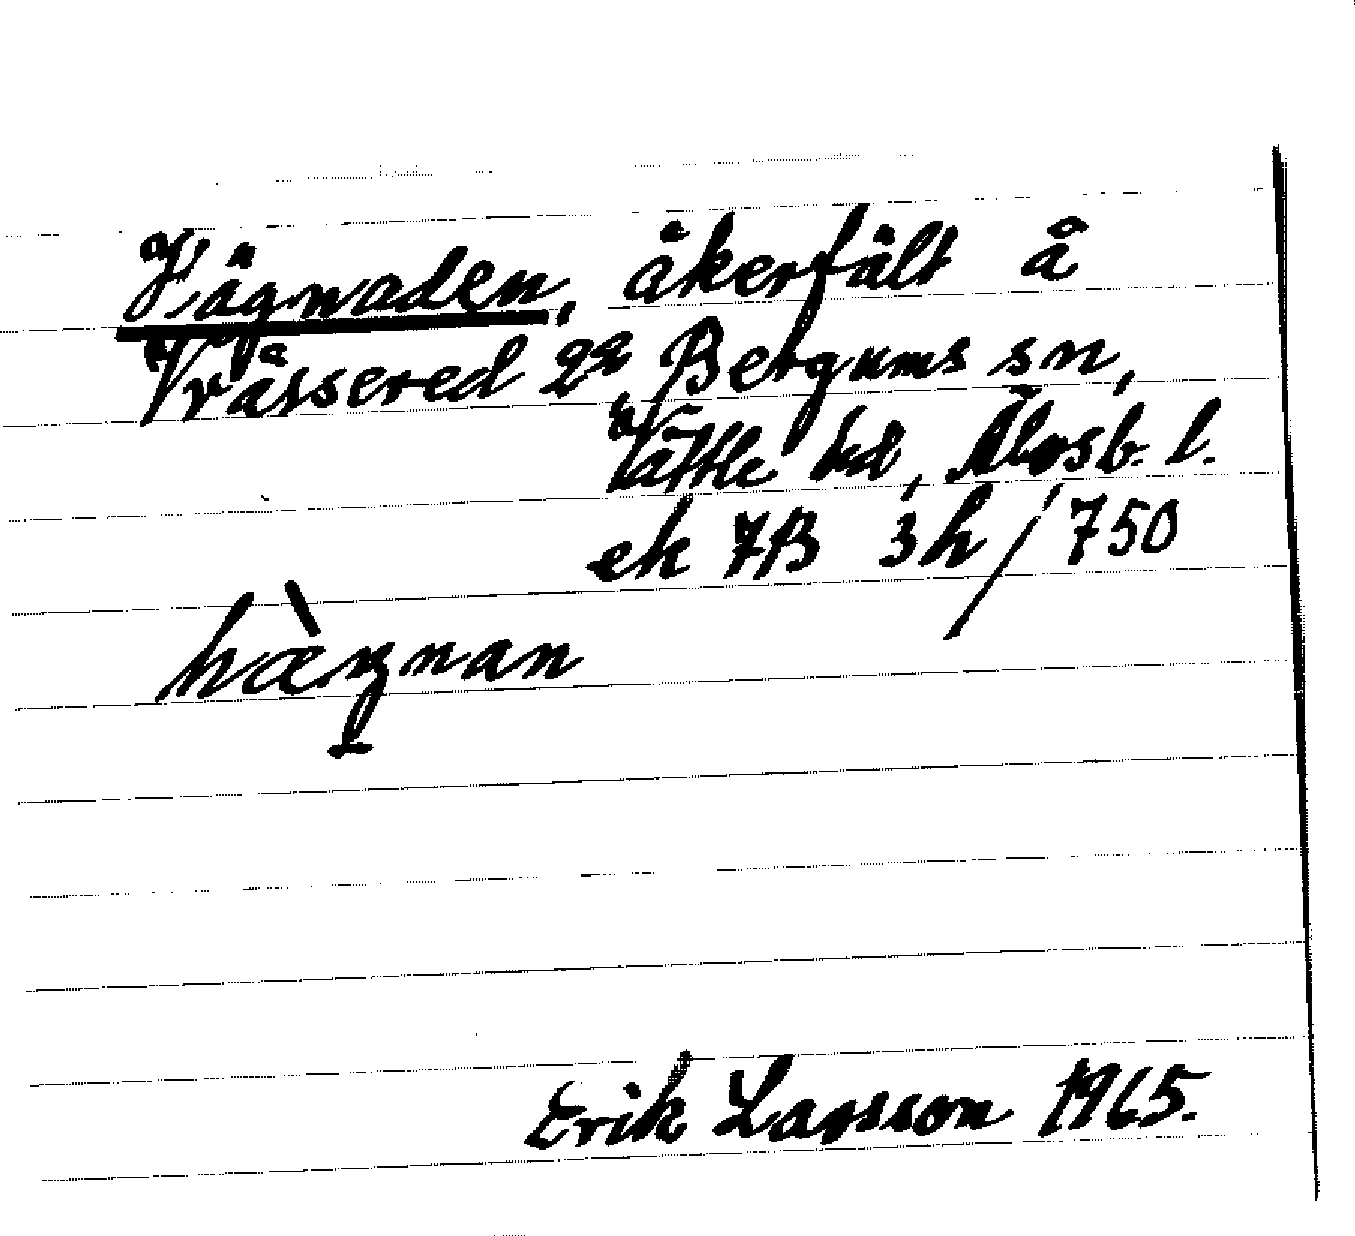 Hägnaden, åkerfält å
Vrässered 2² Bergums sn,
Vättle hd, Älvsb. l.
ek 7B 3h/750
hæ̀gnan
Erik Larsson 1965.